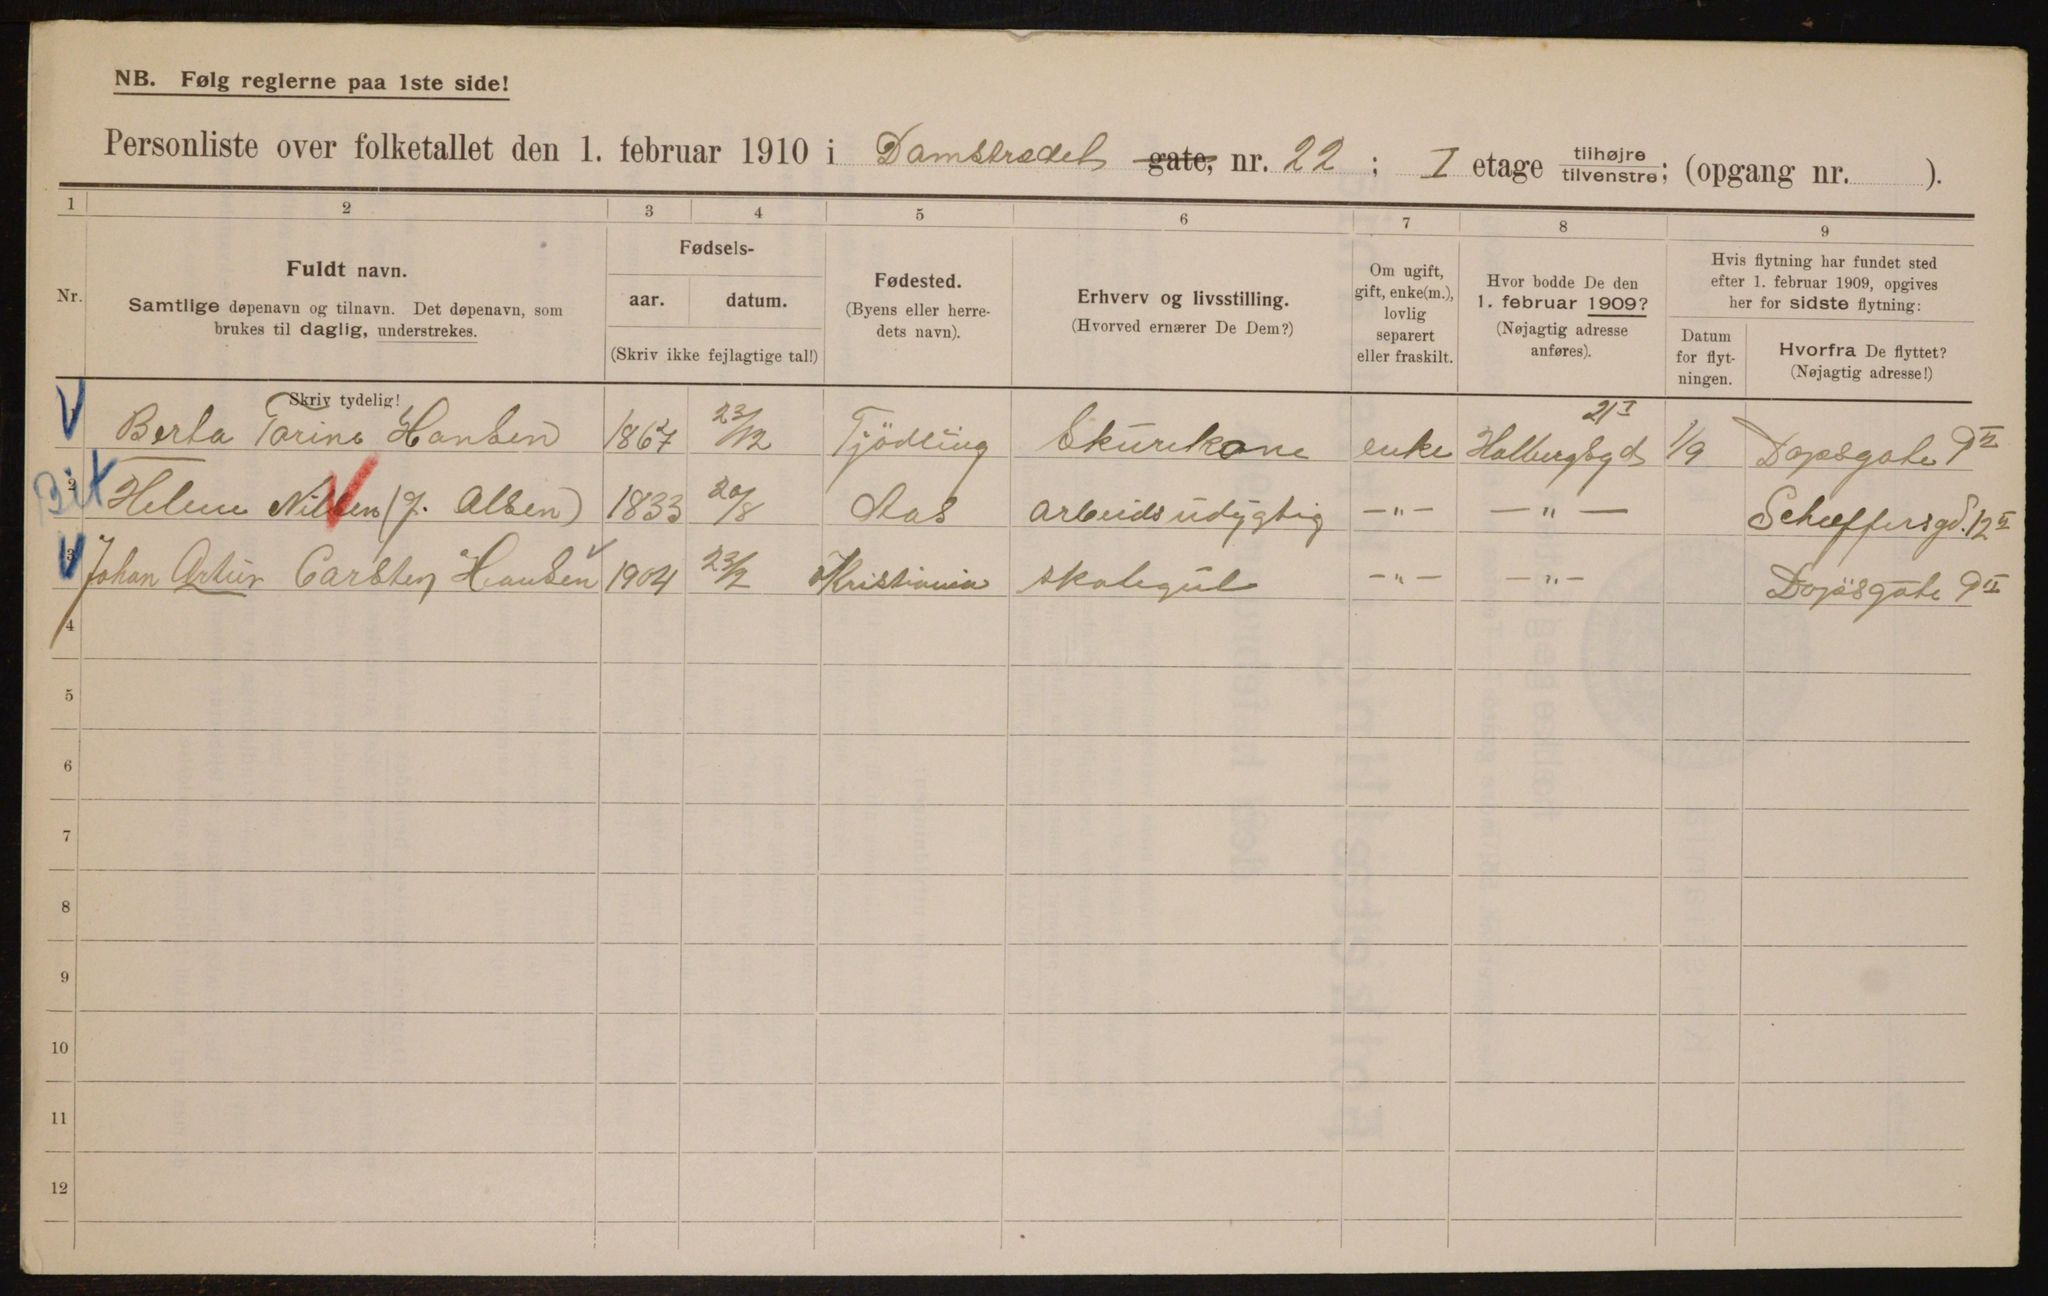 NB. Følg reglerne paa 1ste side!
Personliste over folketallet den 1. februar 1910 i Damstrædet gate, nr. 22 ; I etage tilhøjre / tilvenstre ; (opgang nr. ).
1 2 3 4 5 6 7 8 9
Nr.
Fuldt navn.
Samtlige døpenavn og tilnavn. Det døpenavn, som
brukes til daglig, understrekes.
Skriv tydelig!
Fødsels-
aar. datum.
(Skriv ikke fejlagtige tal!)
Fødested.
(Byens eller herre-
dets navn).
Erhverv og livsstilling.
(Hvorved ernærer De Dem?)
Om ugift,
gift, enke(m.),
lovlig
separert
eller fraskilt.
Hvor bodde De den
1. februar 1909?
(Nøjagtig adresse
anføres).
Hvis flytning har fundet sted
efter 1. februar 1909, opgives
her for sidste flytning:
Datum
for flyt-
ningen.
Hvorfra De flyttet?
(Nøjagtig adresse!)
Berta Torine Hansen 1867 23/12 Tjödling Skurekone enke Holbergsgd 21 I 1/9 Dopsgate 9 II
2 Helene Nilsen (f. Olsen) 1833 20/8 Aas arbeidsudygtig —"— —"— Scheffersgd. 12 II
3 Johan Artur Carsten Hansen 1904 23/2 Kristiania skolegut —"— —"— Dopsgate 9 II
4
5
6
7
8
9
10
11
12